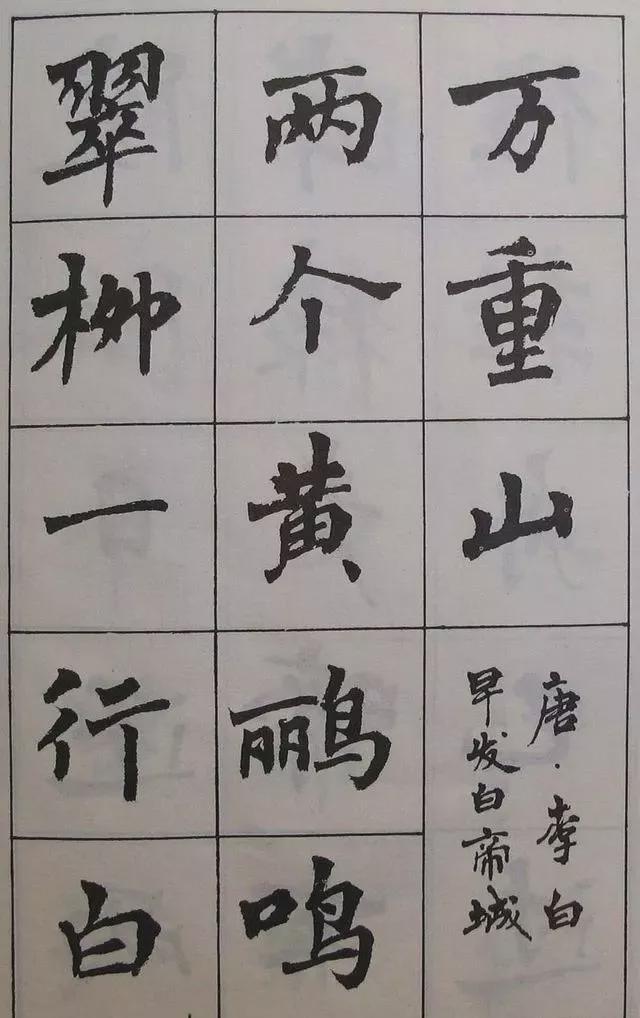 万重山
唐·李白
早发白帝城
两个黄鹂鸣
翠柳一行白